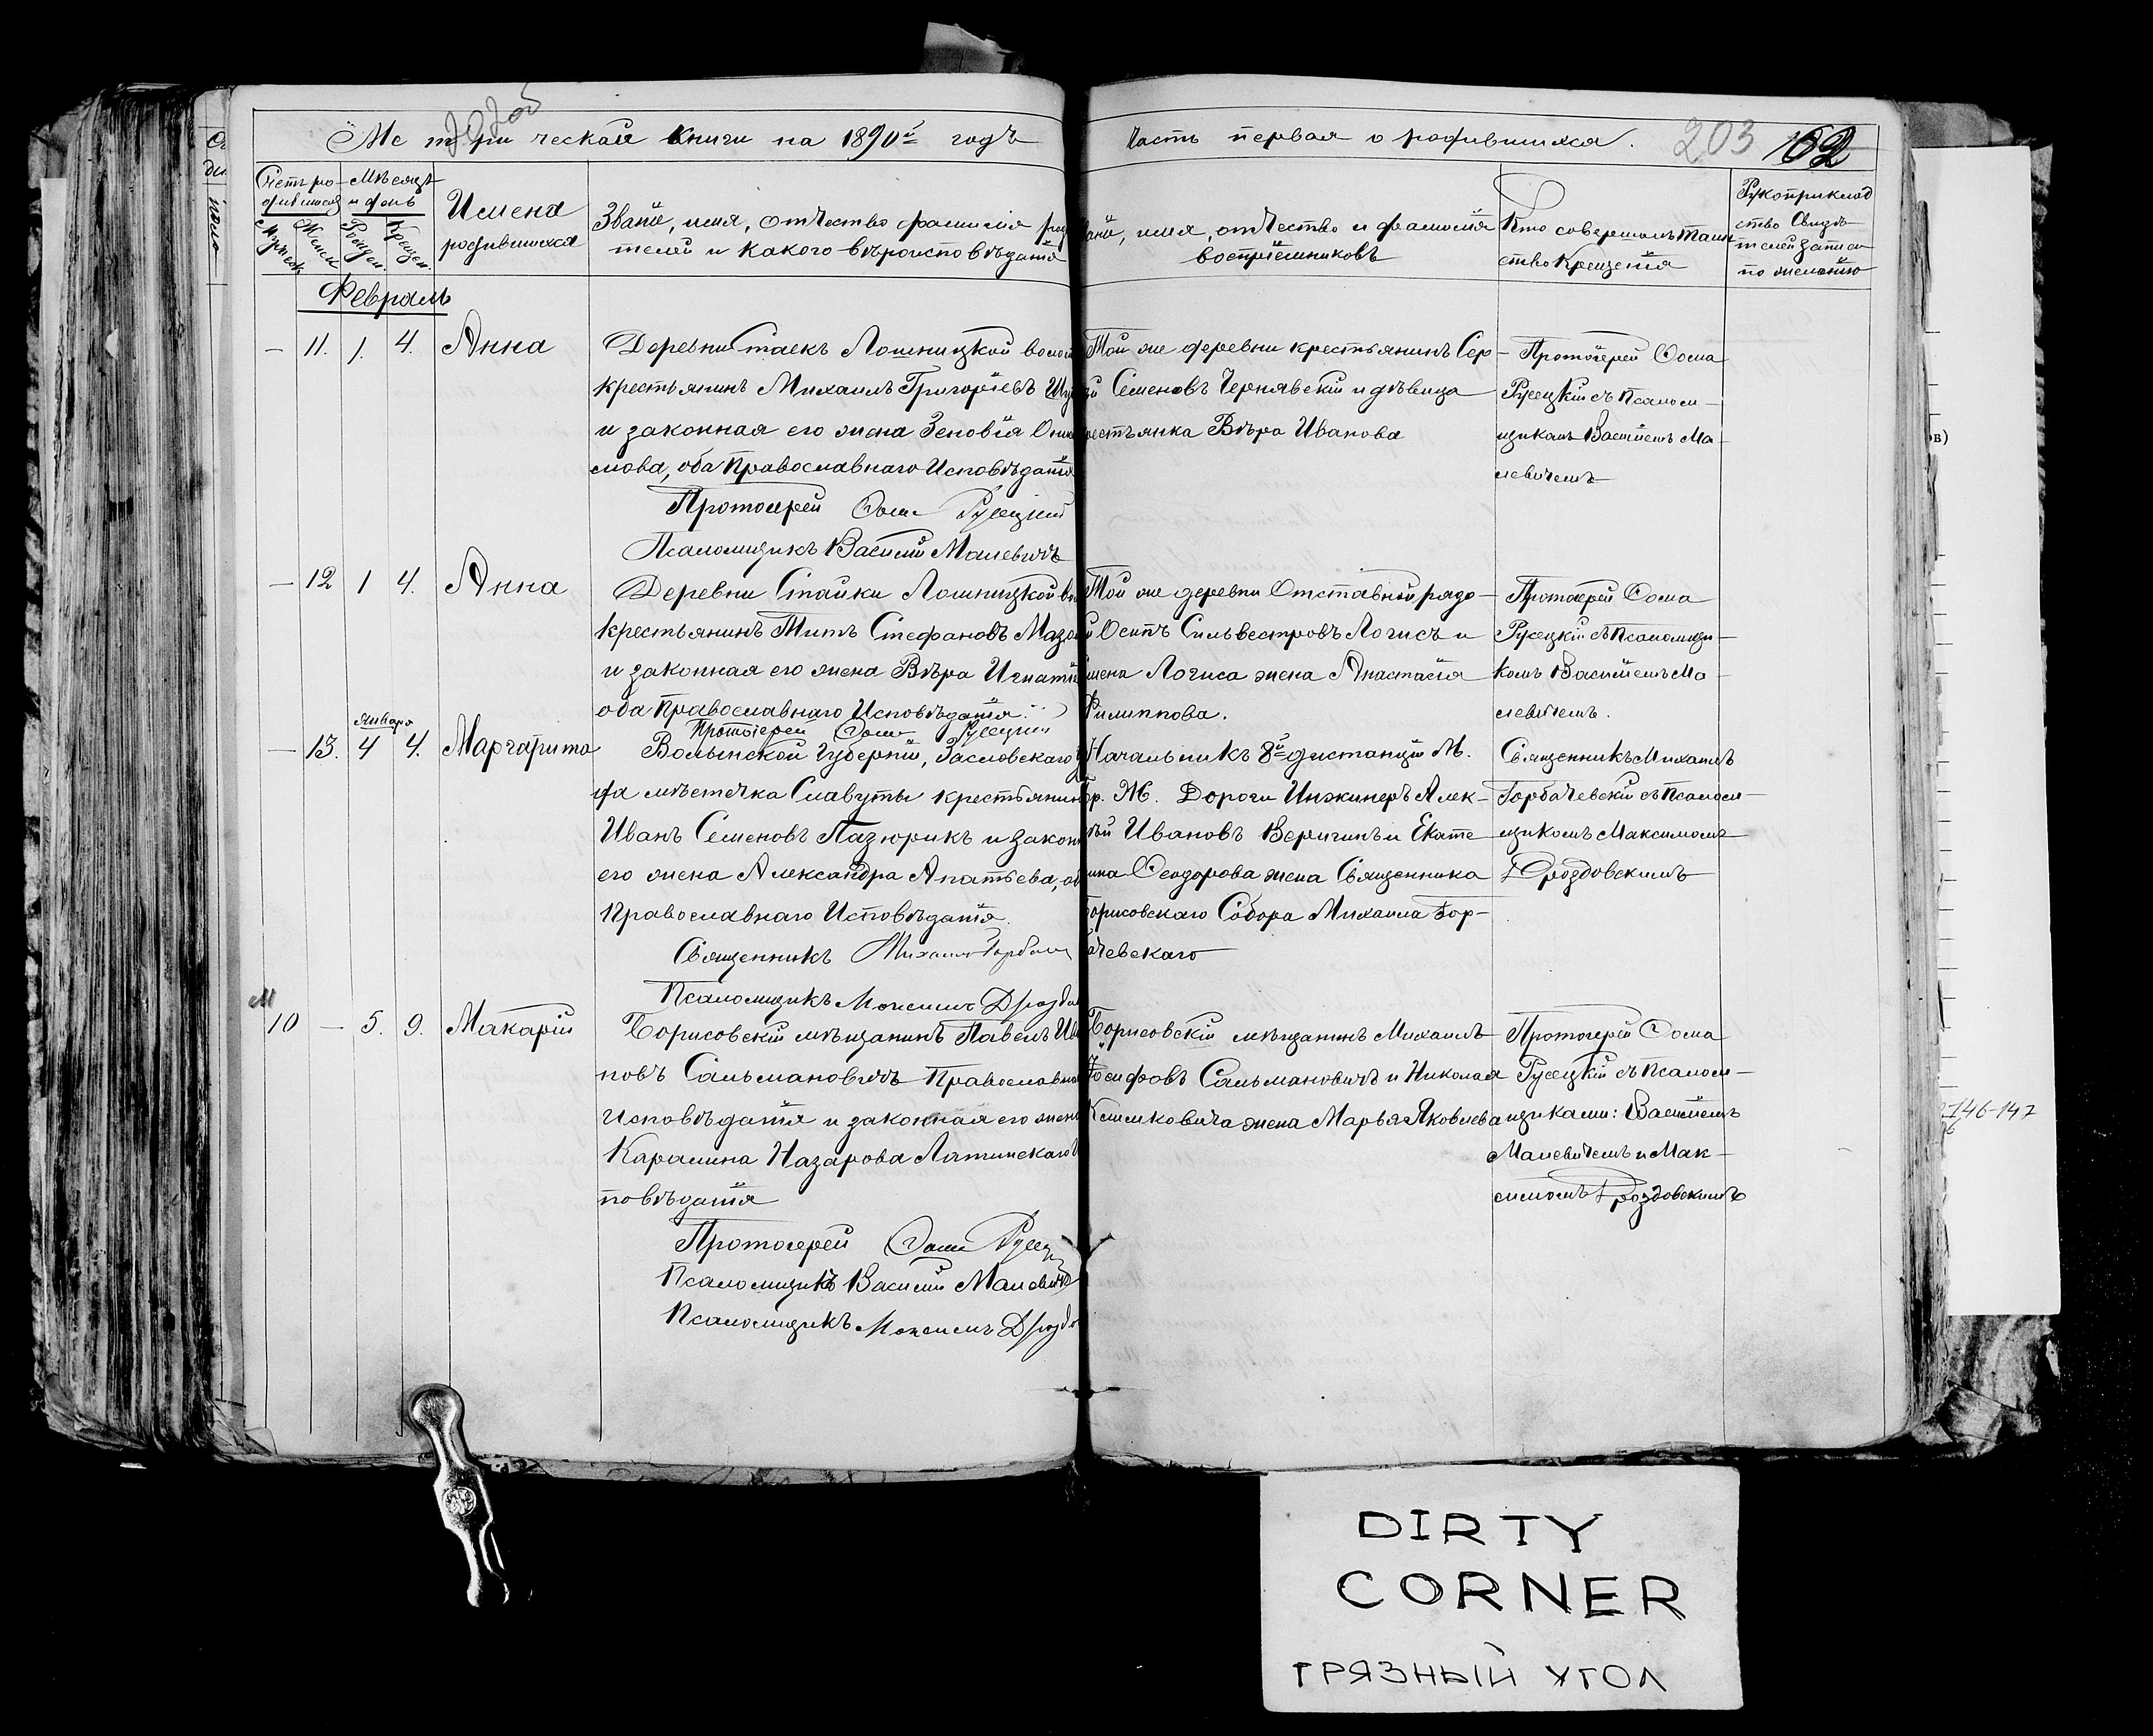 Метрической книги на 1890й годъ
Часть первая о родившихся.
203
162
Счетъ ро-
дившихся
Мужеск
Женск
Мѣсяцъ
и день
Рожден.
Крещен.
Имена
родившихся
Званіе, имя, отчество фамилія род
телей и какого вѣроисповѣданія
аніе, имя, отчество и фамилія
воспріемниковъ
Кто совершалъ Таин
ство Крещенія
Рукоприклад
ство Свидѣ
телей записи
по желанію
Февраль
— 11. 1. 4. Анна
Деревни Стаекъ Лошницкой воло
крестьянинъ Михаилъ Григоріевъ
и законная его жена Зеновія
мова, оба Православнаго Исповѣданія
Протоіерей Ѳома Русецкій
Псаломщикъ Василій Малевичъ
Той же деревни крестьянинъ Сер-
гѣй Семеновъ Чернявскій и дѣвица
рестьянка Вѣра Иванова
Протоіерей Ѳома
Русецкій съ Псалом-
щикомъ Василіемъ Ма-
левичемъ
— 12 1 4. Анна
Деревни Стайки Лошницкой во
крестьянинъ Титъ Стефановъ Мазо
и законная его жена Вѣра Игнатіе
оба Православнаго Исповѣданія.
Протоіерей Ѳома Русецкій
Той же деревни Отставной рядо-
й Осипъ Сильвестровъ Логисъ и
Логиса жена Анастасія
Филиппова.
Протоіерей Ѳома
Русецкій съ Псаломщи-
комъ Василіемъ Ма-
левичемъ.
января
— 13. 4 4. Маргарита
Волынской Губерніи, Заславскаго у
зда мѣстечка Славуты крестьянинъ
Иванъ Семеновъ Пазюрикъ и закон
его жена Александра Ипатьева, об
Православнаго Исповѣданія.
Священникъ Михаилъ Горбач
Псаломщикъ Максимъ Дроздо
Начальникъ 8й дистанціи М.
Бр. Ж. Дороги Инжинеръ Алек-
ѣй Ивановъ Веригинъ и Екате
рина Ѳеодорова жена Священника
Борисовскаго Собора Михаила Гор-
бачевскаго
Священникъ Михаилъ
Горбачевскій съ Псалом-
щикомъ Максимомъ
Дроздовскимъ
М
10 — 5. 9. Макарій
Борисовскій мѣщанинъ Павелъ Ива
новъ Сальмановичъ Православна
Исповѣданія и законная его жена
Каралина Назарова Латинскаго И
повѣданія
Протоіерей Ѳома Русец
Псаломщикъ Василій Малевичъ
Псаломщикъ Максимъ Дроздо
Борисовскій мѣщанинъ Михаилъ
Іосифовъ Сальмановичъ и Николая
Климковича жена Марья Яковлева
Протоіерей Ѳома
Русецкій съ Псалом-
щиками: Василіемъ
Малевичемъ и Мак-
симомъ Дроздовскимъ
146-147
DIRTY
CORNER
ГРЯЗНЫЙ УГОЛ